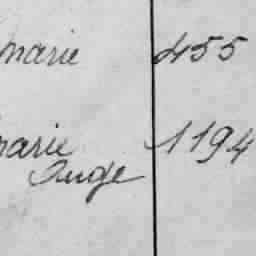 marie 455
marie 1194
Ange